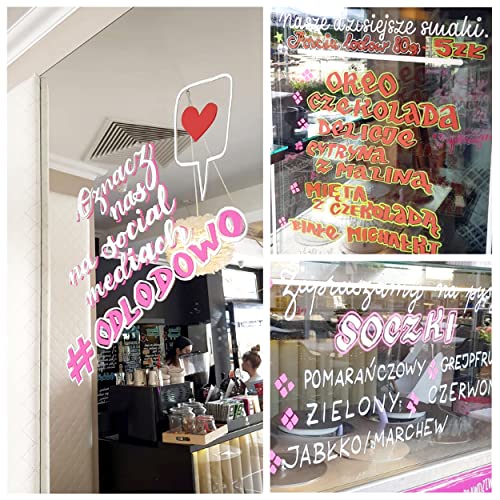 Oznacz
nas
na social
mediach
#ODLODOWO
Nasze dzisiejsze smaki.
Porcja lodów 80g - 5ZŁ
OREO
CZEKOLADA
DELICJE
CYTRYNA
Z MALINĄ
MIĘTA
Z CZEKOLADĄ
BIAŁE MICHAŁKI
Zapraszamy na
SOCZKI
POMARAŃCZOWY GREJPFRU
ZIELONY CZERWON
JABŁKO/MARCHEW